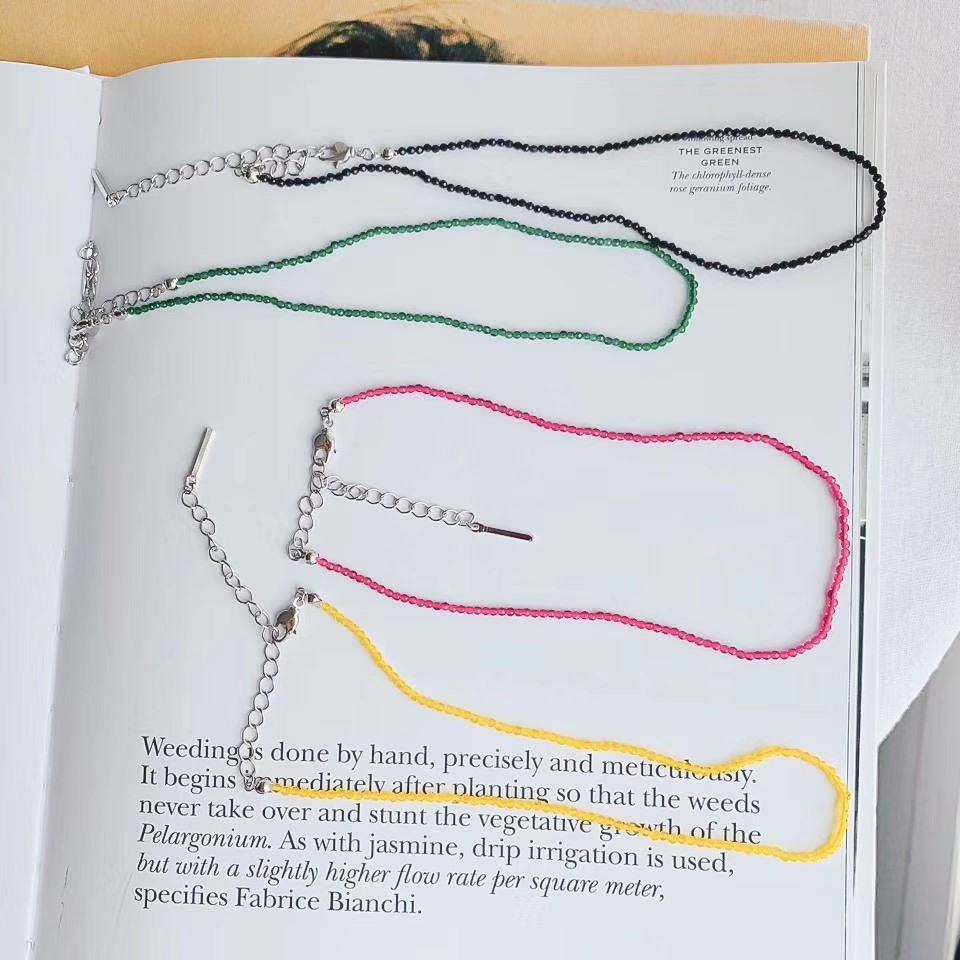 following spread
THE GREENEST
GREEN
The chlorophyll-dense
rose geranium foliage.
Weeding is done by hand, precisely and meticulously.
It begins immediately after planting so that the weeds
never take over and stunt the vegetative growth of the
Pelargonium. As with jasmine, drip irrigation is used,
but with a slightly higher flow rate per square meter,
specifies Fabrice Bianchi.